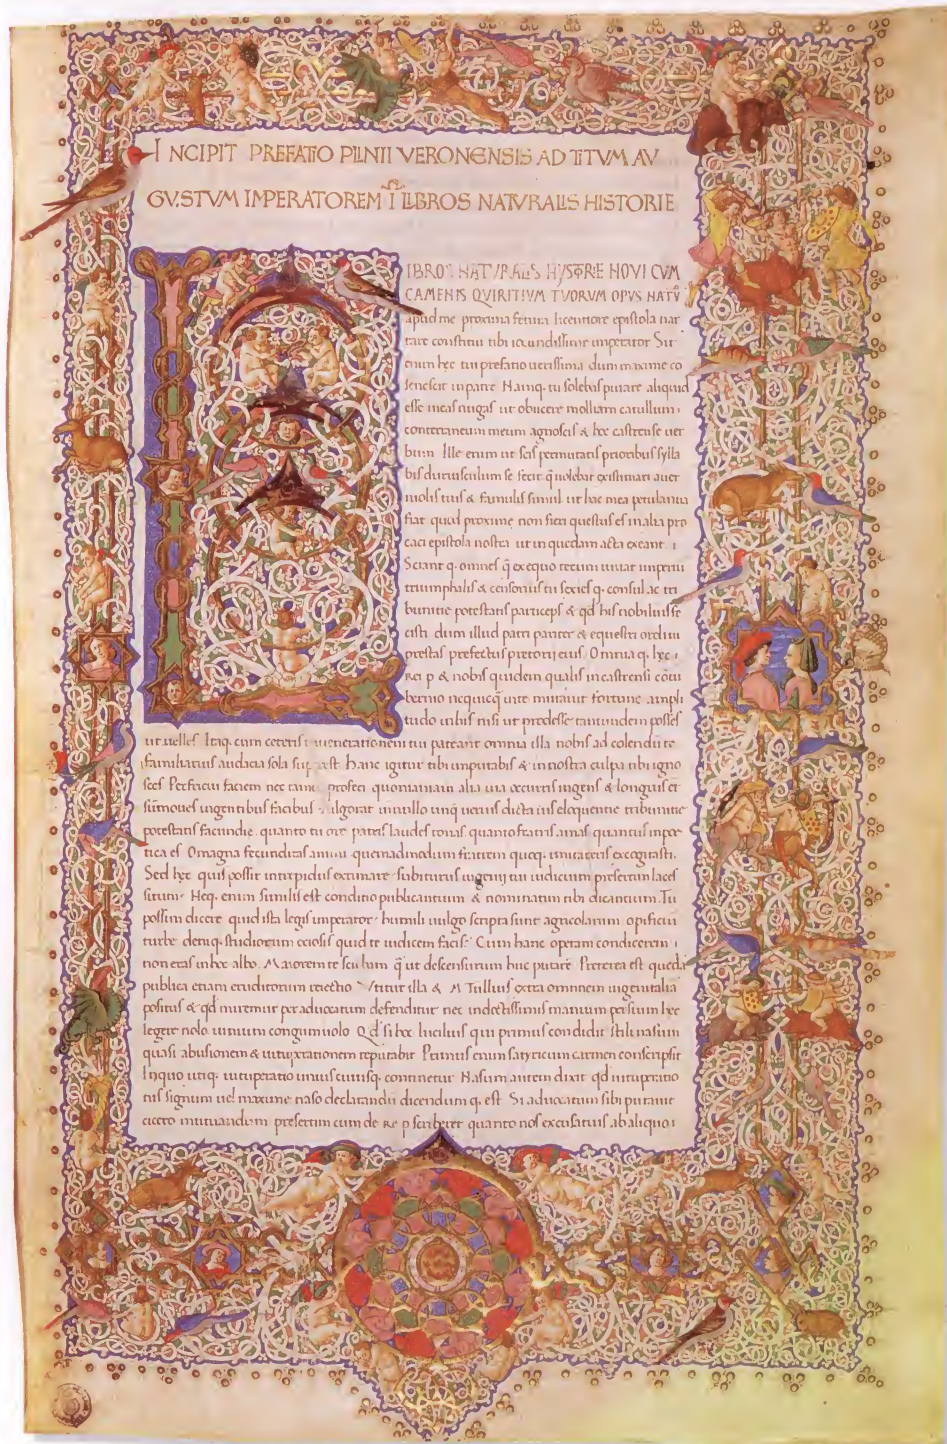 INCIPIT PREFATIO PLINII VERONENSIS AD TITVM AV
GVSTVM IMPERATOREM I LIBROS NATVRALIS HISTORIE
LIBROS NATVRALIS HYSTORIE NOVI CVM
CAMENIS QVIRITIVM TVORVM OPVS NATŪ
apud me proxima fetura licentiore epistola nar
rare constitui tibi iocundissime imperator Sit
enim hec tui prefatio uerissima dum maxime co
senescit in patre Namq. tu solebas putare aliquid
esse meas nugas ut obiicere molliam catullum
conterraneum meum agnoscis & hec castrense uer
bum Ille enim ut scis permutatis prioribus sylla
bis duriusculum se fecit q̄ uolebat existimari a uer
niolis tuis & famulis simul ut hac mea petulantia
fiat quod proxime non fieri questus es in alia pro
caci epistola nostra ut in quedam acta exeant
Sciant q. omnes q̄ ex equo tecum uiuat imperiū
triumphalis & censorius tu sexies q. consul ac tri
bunitie potestatis particeps & qd his nobilius fe
cisti dum illud patri pariter & equestri ordini
prestas prefectus pretorii eius Omnia q. hec
rei p & nobis quidem qualis in castrensi cōtu
bernio nequicq̄ in te mutauit fortune ampli
tudo in his nisi ut prodesse tantundem posses
ut uelles Itaq. cum ceteris in uenerationem tui pateant omnia illa nobis ad colendū te
familiarius audacia sola superest Hanc igitur tibi imputabis & in nostra culpa tibi igno
sces Perfricui faciem nec tamen profeci quoniam alia uia occurris ingens & longius et
summoues ingentibus facibus Fulgorat in nullo unq̄ uerius dicta uis eloquentie tribunitie
potestatis facundie. quanto tu ore patris laudes tonas quanto fratris amas quantus in poe
tica es O magna fecunditas animi quemadmodum fratrem quoq. imitareris excogitasti.
Sed hec quis possit intrepidus extimare subiturus ingenij tui iudicium presertim laces
situm. Neq. enim similis est conditio publicantium & nominatim tibi dicantium. Tū
possim dicere quid ista legis imperator humili uulgo scripta sunt agricolarum opificū
turbe deniq. studiorum ociosis quid te iudicem facis? Cum hanc operam condicerem
non eras in hoc albo. Maiorem te sciebam q̄ ut descensurum huc putarē Preterea est quedā
publica etiam eruditorum reiectio Vtitur illa & M Tullius extra omnem ingenii alia
positus & qd miremur per aduocatum defenditur nec indoctissimis manium persium hec
legere nolo iunium congum uolo Qd si hec lucilius qui primus condidit stili nasum
quasi abusionem & uituperationem reputabit Primus enim satyricum carmen conscripsit
In quo utiq. uituperatio uniuscuiusq. continetur Nasum autem dixit qd uituperatio
nis signum uel maxime naso declarandi dicendum q. est Si aduocatum sibi putauit
cicero mutuandum presertim cum de re p scriberet quanto nos excusatius ab aliquo